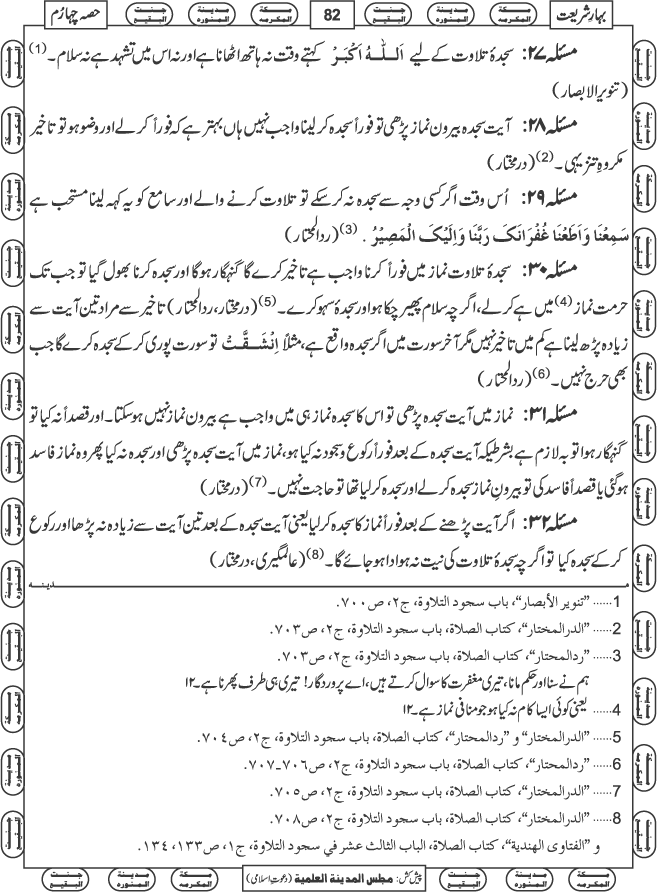 بہارِ شریعت
82
حصہ چہارم
مسئلہ ۲۷: سجدۂ تلاوت کے لیے اَللّٰہُ اَکْبَرْ کہتے وقت نہ ہاتھ اٹھانا ہے اور نہ اس میں تشہد ہے نہ سلام۔ (1)
(تنویر الابصار)
مسئلہ ۲۸: آیت سجدہ بیرون نماز پڑھی تو فوراً سجدہ کر لینا واجب نہیں ہاں بہتر ہے کہ فوراً کر لے اور وضو ہو تو تاخیر
مکروہِ تنزیہی۔ (2) (درمختار)
مسئلہ ۲۹: اُس وقت اگر کسی وجہ سے سجدہ نہ کر سکے تو تلاوت کرنے والے اور سامع کو یہ کہہ لینا مستحب ہے
سَمِعْنَا وَاَطَعْنَا غُفْرَانَکَ رَبَّنَا وَاِلَیْکَ الْمَصِیْرُ . (3) (ردالمحتار)
مسئلہ ۳۰: سجدۂ تلاوت نماز میں فوراً کرنا واجب ہے تاخیر کرے گا گنہگار ہوگا اور سجدہ کرنا بھول گیا تو جب تک
حرمت نماز (4) میں ہے کر لے، اگرچہ سلام پھیر چکا ہو اور سجدۂ سہو کرے۔ (5) (درمختار، ردالمحتار) تاخیر سے مراد تین آیت سے
زیادہ پڑھ لینا ہے کم میں تاخیر نہیں مگر آخر سورت میں اگر سجدہ واقع ہے، مثلاً اِنْشَقَّتْ تو سورت پوری کر کے سجدہ کرے گا جب
بھی حرج نہیں۔ (6) (ردالمحتار)
مسئلہ ۳۱: نماز میں آیت سجدہ پڑھی تو اس کا سجدہ نماز ہی میں واجب ہے بیرون نماز نہیں ہو سکتا۔ اور قصداً نہ کیا تو
گنہگار ہوا توبہ لازم ہے بشرطیکہ آیت سجدہ کے بعد فوراً رکوع و سجود نہ کیا ہو، نماز میں آیت سجدہ پڑھی اور سجدہ نہ کیا پھر وہ نماز فاسد
ہوگئی یا قصداً فاسد کی تو بیرونِ نماز سجدہ کر لے اور سجدہ کر لیا تھا تو حاجت نہیں۔ (7) (درمختار)
مسئلہ ۳۲: اگر آیت پڑھنے کے بعد فوراً نماز کا سجدہ کر لیا یعنی آیت سجدہ کے بعد تین آیت سے زیادہ نہ پڑھا اور رکوع
کر کے سجدہ کیا تو اگرچہ سجدۂ تلاوت کی نیت نہ ہو ادا ہو جائے گا۔ (8) (عالمگیری، درمختار)
1...... "تنوير الأبصار"، باب سجود التلاوة، ج٢، ص٧٠٠.
2...... "الدرالمختار"، كتاب الصلاة، باب سجود التلاوة، ج٢، ص٧٠٣.
3...... "ردالمحتار"، كتاب الصلاة، باب سجود التلاوة، ج٢، ص٧٠٣.
ہم نے سنا اور حکم مانا، تیری مغفرت کا سوال کرتے ہیں، اے پروردگار! تیری ہی طرف پھرنا ہے۔ ۱۲
4...... یعنی کوئی ایسا کام نہ کیا ہو جو منافی نماز ہے۔ ۱۲
5...... "الدرالمختار" و "ردالمحتار"، كتاب الصلاة، باب سجود التلاوة، ج٢، ص٧٠٤.
6...... "ردالمحتار"، كتاب الصلاة، باب سجود التلاوة، ج٢، ص٧٠٦-٧٠٧.
7...... "الدرالمختار"، كتاب الصلاة، باب سجود التلاوة، ج٢، ص٧٠٥.
8...... "الدرالمختار"، كتاب الصلاة، باب سجود التلاوة، ج٢، ص٧٠٨.
و "الفتاوى الهندية"، كتاب الصلاة، الباب الثالث عشر في سجود التلاوة، ج١، ص١٣٣، ١٣٤.
پیش کش: مجلس المدینة العلمیة (دعوتِ اسلامی)